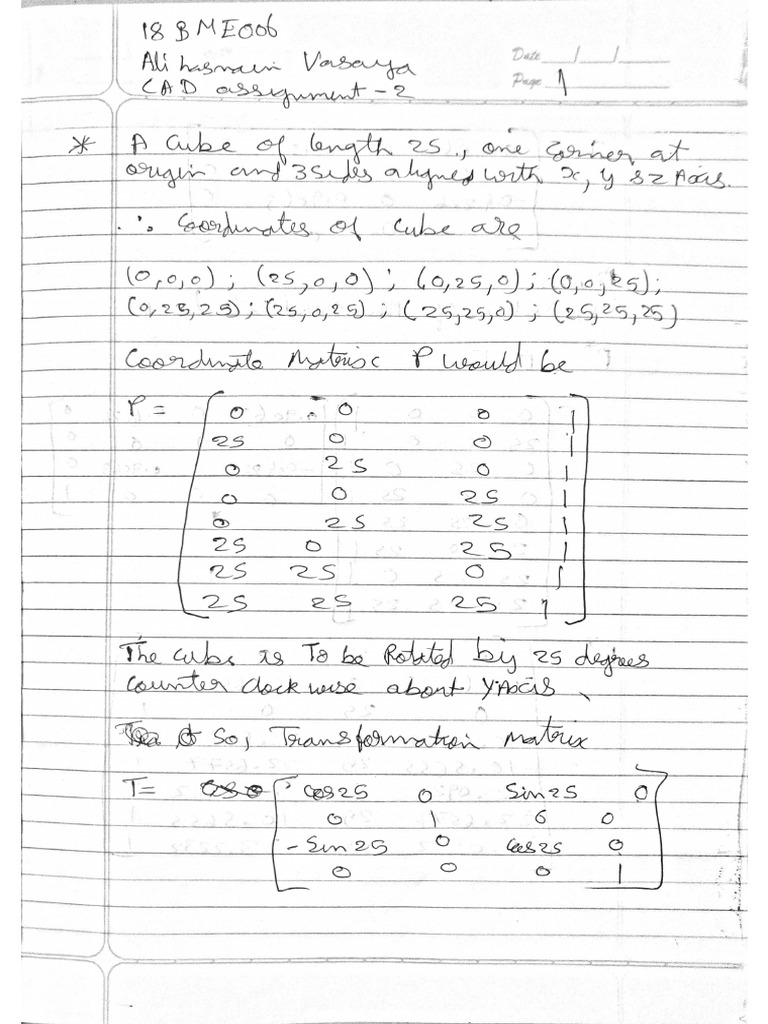 18BME006
Ali hasnain Vasaya
CAD assignment - 2
Date / /
Page 1
* A Cube of length 25., one corner at
origin and 3 sides aligned with x, y & z Axis.
∴ Coordinates of cube are
(0,0,0) ; (25,0,0) ; (0,25,0) ; (0,0,25);
(0,25,25) ; (25,0,25) ; (25,25,0) ; (25,25,25)
Coordinate Matrix P would be
P = [ 0 0 0 1
25 0 0 1
0 25 0 1
0 0 25 1
0 25 25 1
25 0 25 1
25 25 0 1
25 25 25 1 ]
The cube is To be Rotated by 25 degrees
counter clockwise about Y Axis
So, Transformation Matrix
T = [ cos25 0 Sin25 0
0 1 0 0
-Sin25 0 cos25 0
0 0 0 1 ]